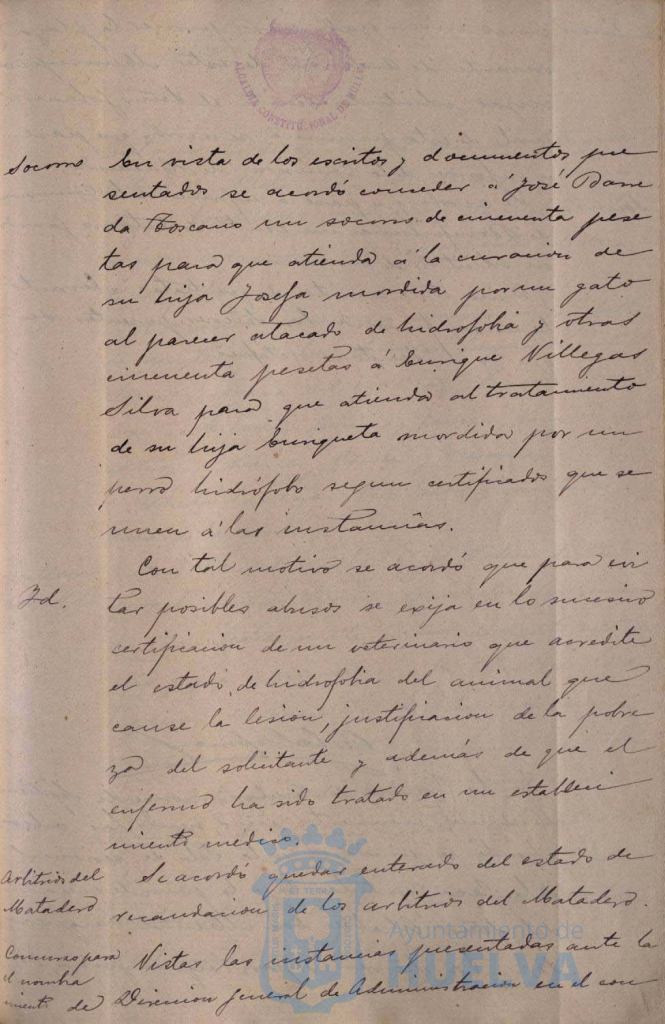 ALCALDIA CONSTITUCIONAL DE HUELVA
Socorro En vista de los escritos y documentos pre
sentados se acordó conceder á José Barre
da Toscano un socorro de cincuenta pese
tas para que atienda á la curacion de
su hija Josefa mordida por un gato
al parecer atacado de hidrofobia y otras
cincuenta pesetas á Enrique Villegas
Silva para que atienda al tratamiento
de su hija Enriqueta mordida por un
perro hidrófobo segun certificados que se
unen á las instancias.
Con tal motivo se acordó que para evi
Id. tar posibles abusos se exija en lo sucesivo
certificacion de un veterinario que acredite
el estado de hidrofobia del animal que
cause la lesion, justificacion de la pobre
za del solicitante y además de que el
enfermo ha sido tratado en un estableci
miento médico.
Arbitrios del Se acordó quedar enterado del estado de
Matadero recaudacion de los arbitrios del Matadero.
Ayuntamiento de
HUELVA
Concurso para Vistas las instancias presentadas ante la
el nombra
miento de Direccion general de Administracion en el con